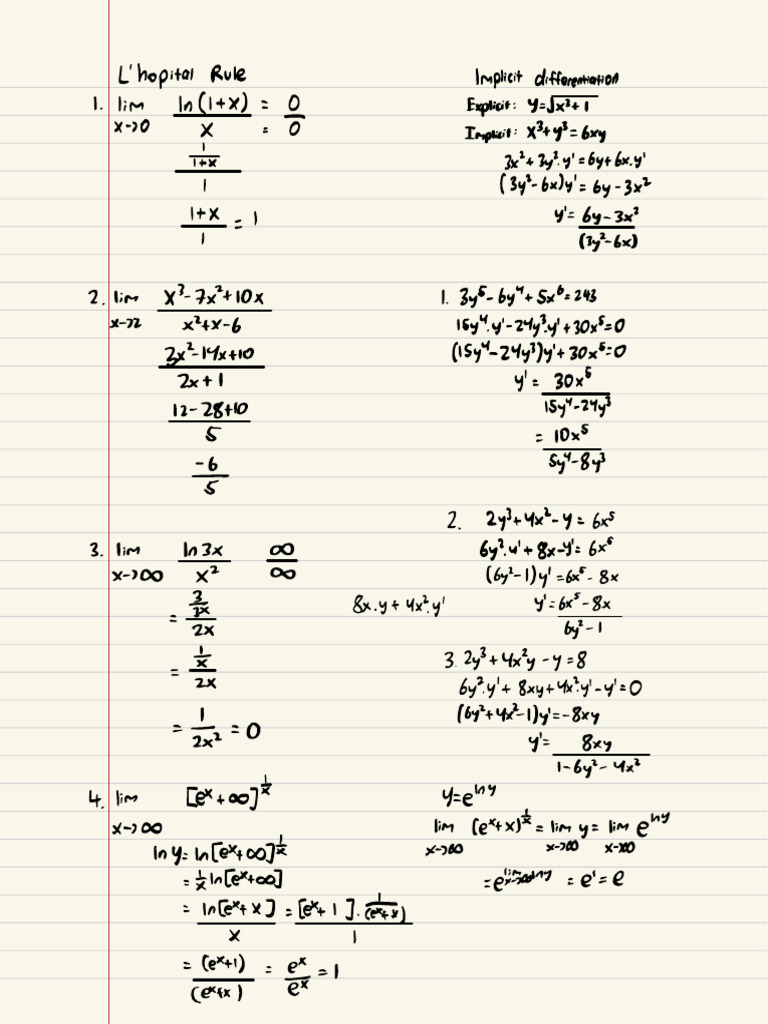 L'hopital Rule
1. lim x→0 ln(1+x)/x = 0 = 0
(1/(1+x))/1
(1+x)/1 = 1
2. lim x→2 (x³-7x²+10x)/(x²+x-6)
(3x²-14x+10)/(2x+1)
(12-28+10)/5
-6/5
3. lim x→∞ ln3x/x² ∞/∞
= (3/3x)/2x
= (1/x)/2x
= 1/2x² = 0
4. lim x→∞ [eˣ+∞]^(1/x)
ln y = ln[eˣ+∞]^(1/x)
= 1/x ln[eˣ+∞]
= ln[eˣ+x]/x = [eˣ+1]·1/(eˣ+x)/1
= (eˣ+1)/(eˣ+x) = eˣ/eˣ = 1
Implicit differentiation
Explicit: y=√x²+1
Implicit: x³+y³=6xy
3x²+3y²·y'=6y+6x·y'
(3y²-6x)y'=6y-3x²
y'=6y-3x²/(3y²-6x)
1. 3y⁵-6y⁴+5x⁶=243
15y⁴·y'-24y³·y'+30x⁵=0
(15y⁴-24y³)y'+30x⁵=0
y'=30x⁵/15y⁴-24y³
=10x⁵/5y⁴-8y³
2. 2y³+4x²-y=6x⁵
6y²·y'+8x-y'=6x⁵
(6y²-1)y'=6x⁵-8x
y'=6x⁵-8x/6y²-1
8x·y+4x²·y'
3. 2y³+4x²y-y=8
6y²·y'+8xy+4x²·y'-y'=0
(6y²+4x²-1)y'=-8xy
y'=8xy/1-6y²-4x²
y=e^(ln y)
lim x→∞ (eˣ+x)^(1/x) = lim x→∞ y = lim x→∞ e^(ln y)
= e^(lim x→∞ ln y) = e' = e